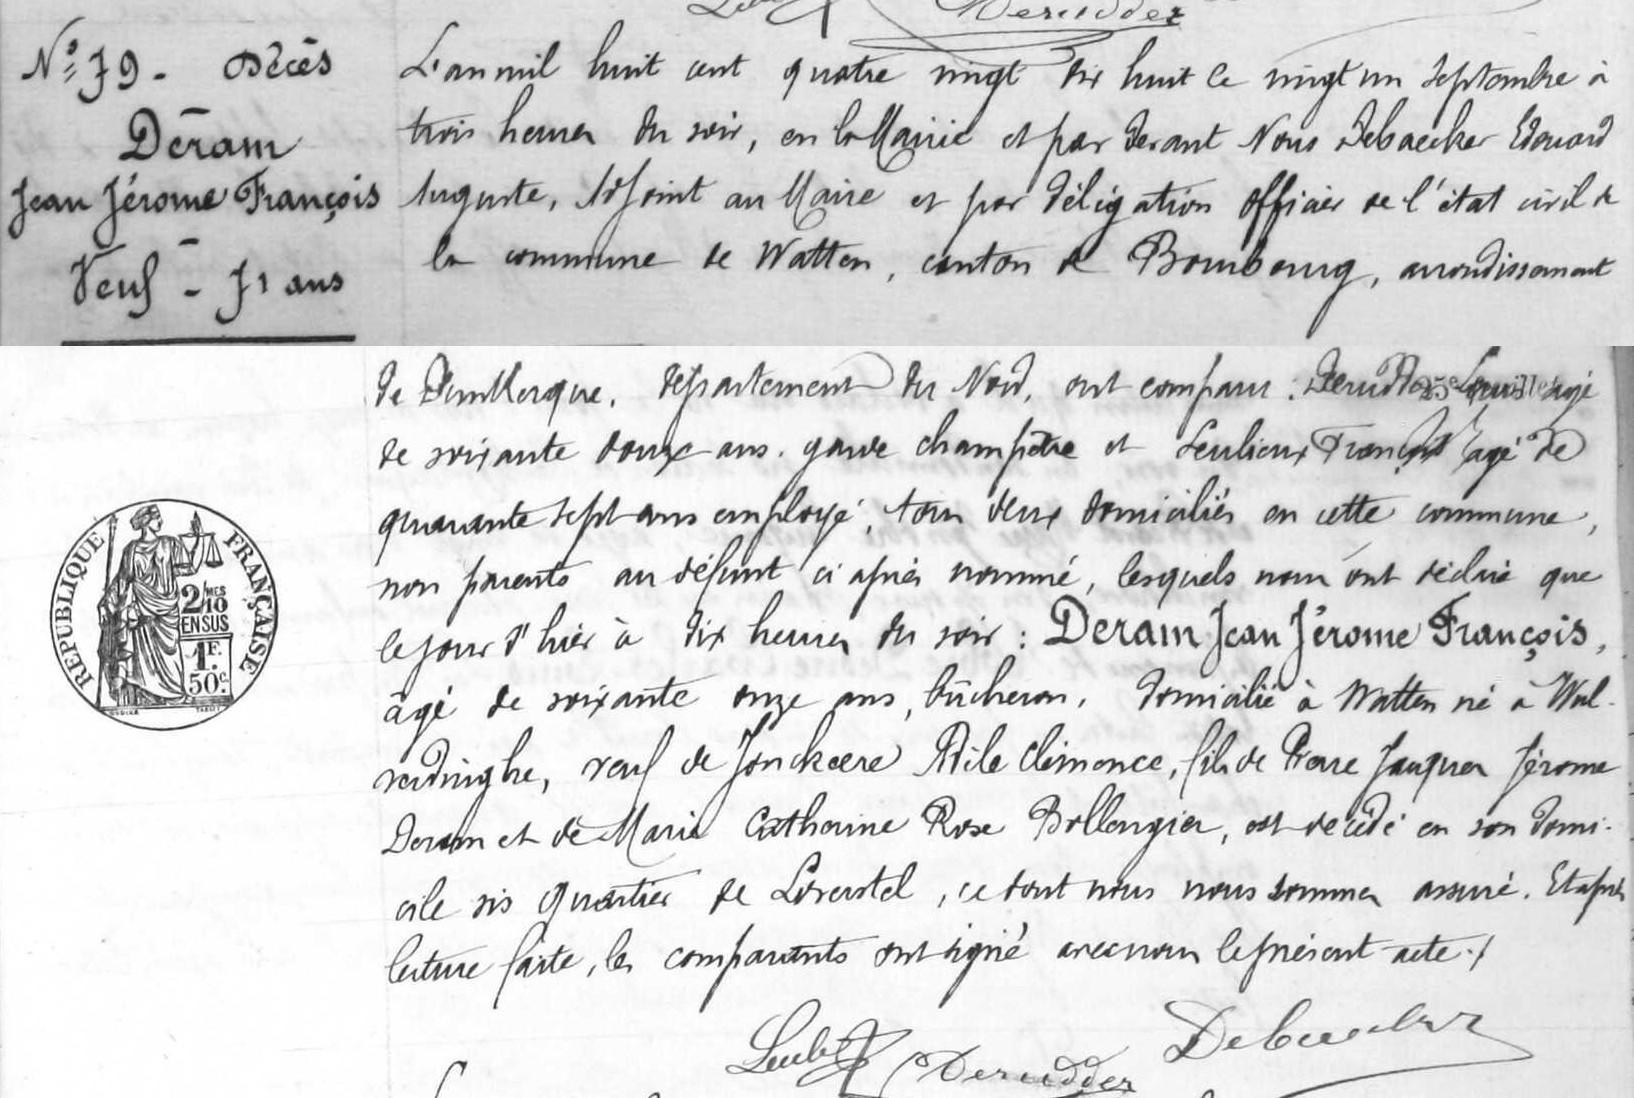 Derudder
N° 79 - Décès
Deram
Jean Jérome François
Veuf - 71 ans
L'an mil huit cent quatre vingt dix huit le vingt un septembre à
trois heures du soir, en la Mairie et par devant Nous Debaecker Edouard
Auguste, Adjoint au Maire et par délégation officier de l'état civil de
la commune de Watten, canton de Bourbourg, arrondissement
de Dunkerque, département du Nord, ont comparu : Derudder Louis âgé
de soixante douze ans, garde champêtre et Leulieux François âgé de
quarante sept ans employé, tous deux domiciliés en cette commune,
non parents au défunt ci après nommé, lesquels nous ont déclaré que
le jour d'hier à dix heures du soir : Deram Jean Jérome François,
âgé de soixante onze ans, bûcheron, domicilié à Watten né à Wul-
verdinghe, veuf de Jonckeere Adile Clémence, fils de Pierre Jacques Jérome
Deram et de Marie Catherine Rose Bollengier, est décédé en son domi-
cile sis quartier de , ce dont nous nous sommes assuré. Et après
lecture faite, les comparants ont signé avec nous le présent acte ./
Derudder Debaecker
RÉPUBLIQUE FRANÇAISE
2/10 MES
EN SUS
1F.
50c.